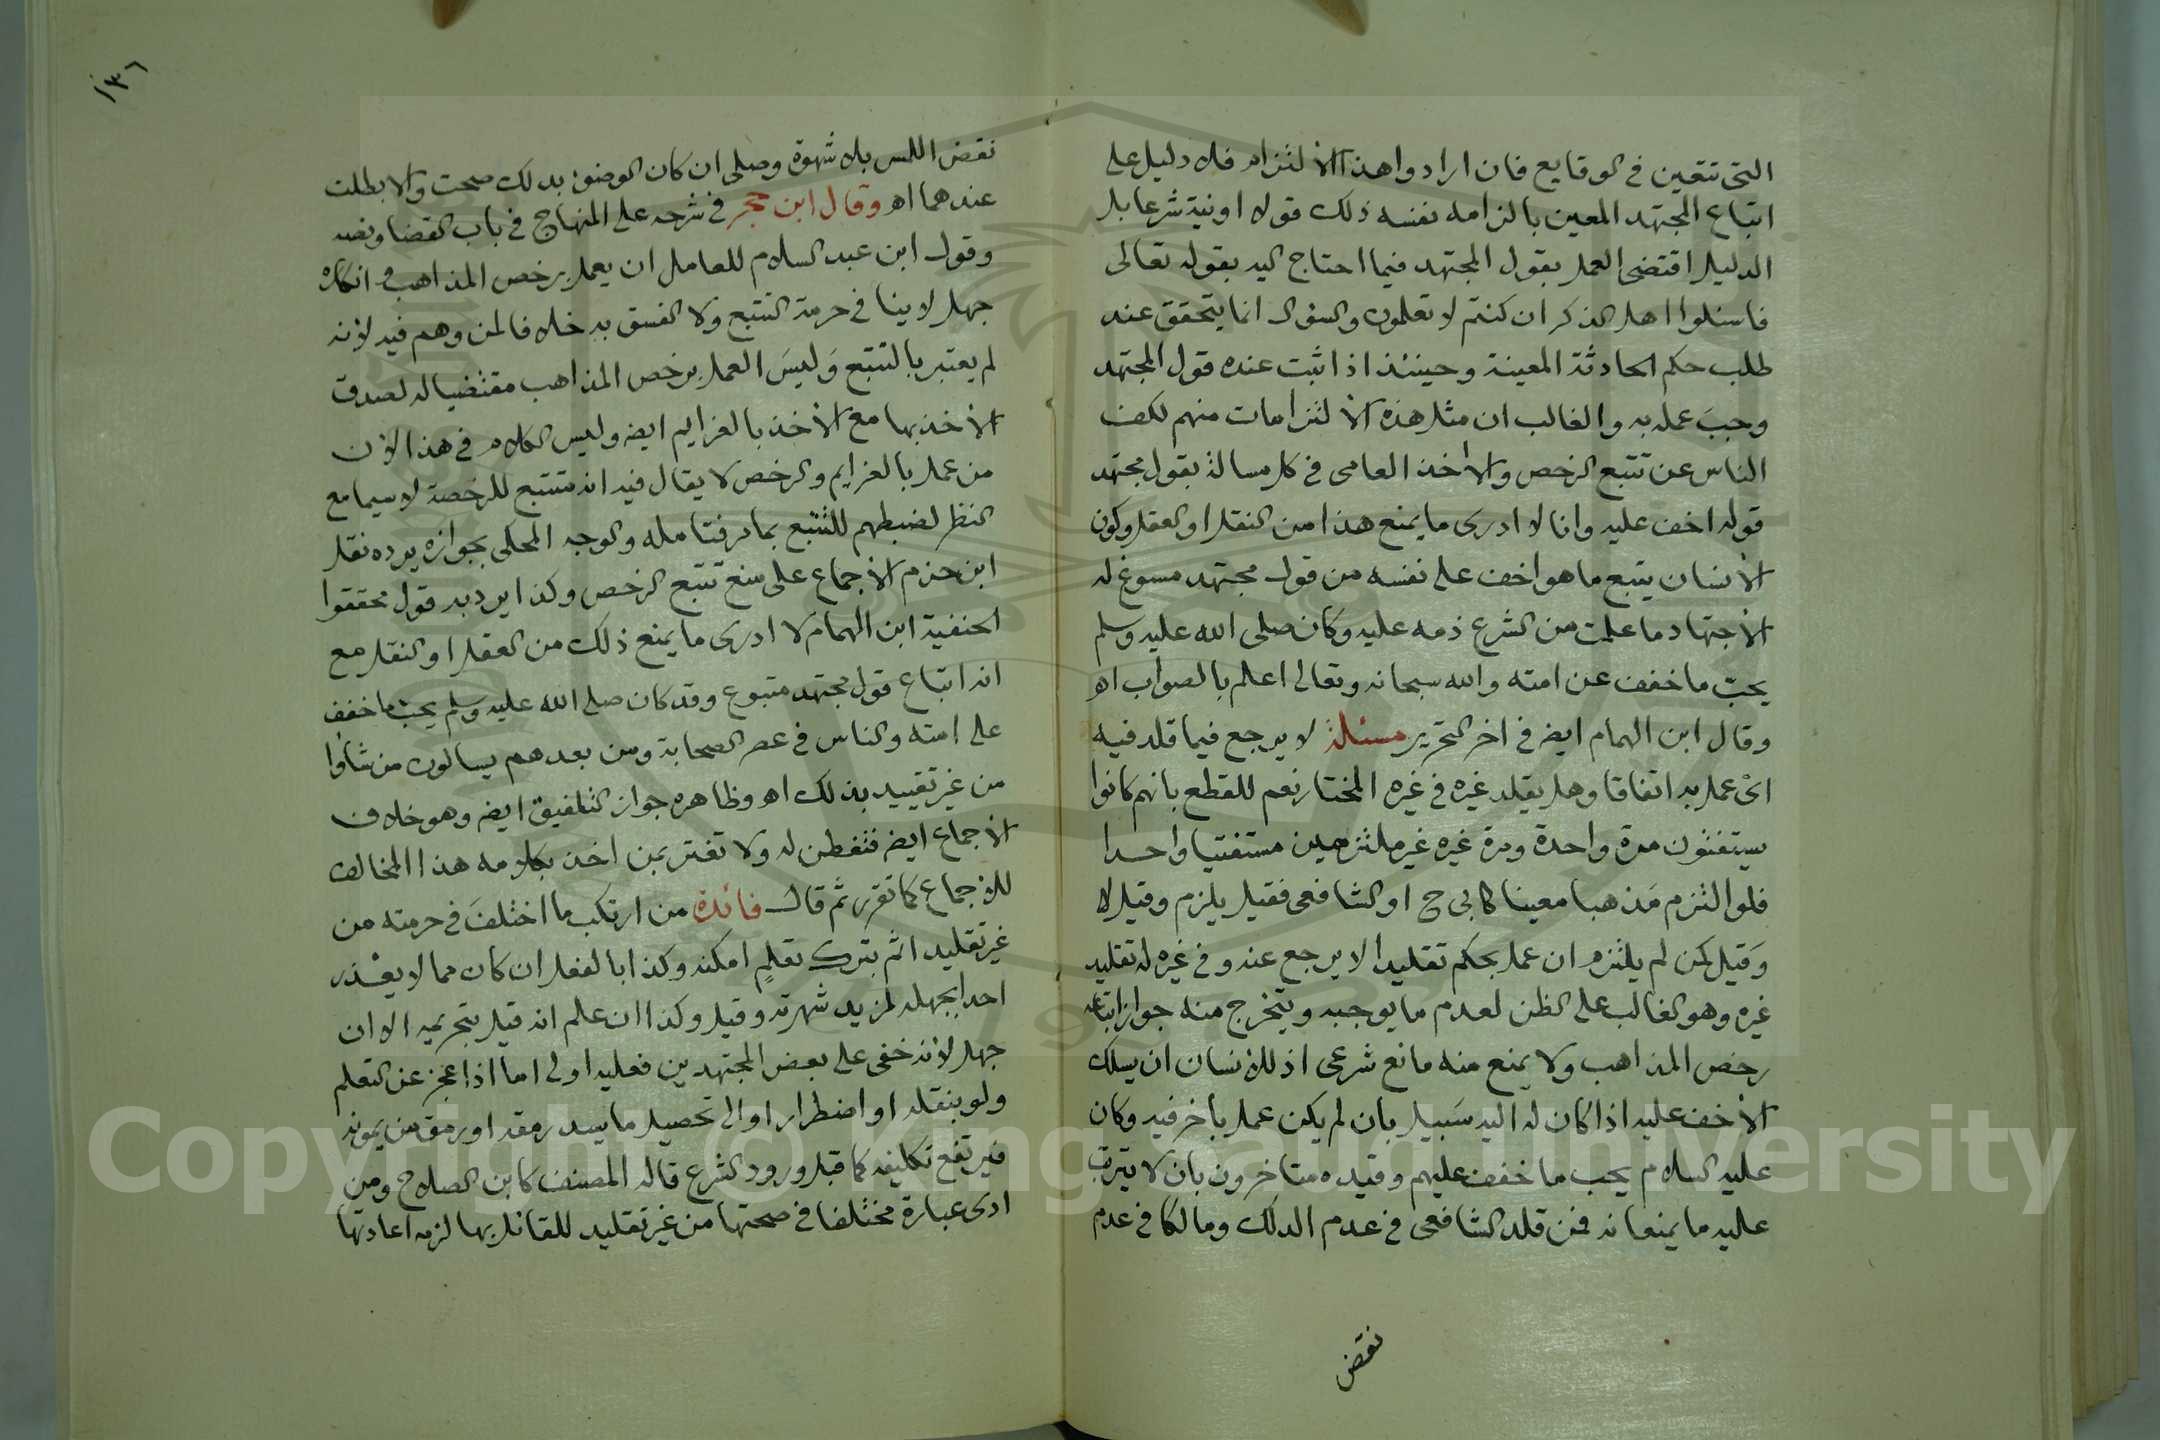 التى تتعين فى الوقايع فان ارادوا هذا الالتزام فلا دليل على
اتباع المجتهد المعين بالزامه نفسه ذلك قولا او نية شرعا بل
الدليل اقتضى العمل بقول المجتهد فيما احتاج اليه بقوله تعالى
فاسئلوا اهل الذكر ان كنتم لا تعلمون والسؤال انما يتحقق عند
طلب حكم الحادثة المعينة وحينئذ اذا ثبت عنده قول المجتهد
وجب عمله به والغالب ان مثل هذه الالتزامات منهم لكف
الناس عن تتبع الرخص والا اخذ العامى فى كل مسالة بقول مجتهد
قوله اخف عليه وانا لا ادرى ما يمنع هذا من النقل او العقل وكون
الانسان يتبع ما هو اخف على نفسه من قول مجتهد مسوغ له
الاجتهاد ما علمت من الشرع ذمه عليه وكان صلى الله عليه وسلم
يحب ما خفف عن امته والله سبحانه وتعالى اعلم بالصواب اه
وقال ابن الهمام ايضا فى اخر التحرير مسئلة لا يرجع فيما قلد فيه
اى عمل به اتفاقا وهل يقلد غيره فى غيره المختار نعم للقطع بانهم كانوا
يستفتون مرة واحدة ومرة غيره غير ملتزمين مستفتيا واحدا
فلو التزم مذهبا معينا كابى ح او الشافعى فقيل يلزم وقيل لا
وقيل كمن لم يلتزم ان عمل بحكم تقليدا لا يرجع عنه وفى غيره له تقليد
غيره وهو الغالب على الظن لعدم ما يوجبه ويتخرج منه جواز اتباعه
رخص المذاهب ولا يمنع منه مانع شرعى اذ للانسان ان يسلك
الاخف عليه اذا كان له اليه سبيل بان لم يكن عمل بآخر فيه وكان
عليه السلام يحب ما خفف عليهم وقيده متاخرون بان لا يترتب
عليه ما يمنعانه فمن قلد الشافعى فى عدم الدلك ومالكا فى عدم
نقض
١٣٦
نقض اللمس بلا شهوة وصلى ان كان الوضوء بدلك صحت والا بطلت
عندهما اه وقال ابن حجر فى شرحه على المنهاج فى باب القضا ونصه
وقول ابن عبد السلام للعامل ان يعمل برخص المذاهب وانكاره
جهل لا ينافى حرمة التتبع ولا الفسق به خلافا لمن وهم فيه لانه
لم يعتبر بالتتبع وليس العمل برخص المذاهب مقتضيا له لصدق
الاخذ بها مع الاخذ بالعزايم ايضا وليس الكلام فى هذا لان
من عمل بالعزايم والرخص لا يقال فيه انه متتبع للرخصة لاسيما مع
النظر لضبطهم للتتبع بما مر فتامله والوجه المحكى بجوازه يرده نقل
ابن حزم الاجماع على منع تتبع الرخص وكذا يرد به قول محققوا
الحنفية ابن الهمام لا ادرى ما يمنع ذلك من العقل او النقل مع
انه اتباع قول مجتهد متبوع وقد كان صلى الله عليه وسلم يحب ما خفف
على امته والناس فى عصر الصحابة ومن بعدهم يسالون من شاؤا
من غير تقييد بذلك اه وظاهره جواز التلفيق ايضا وهو خلاف
الاجماع ايضا فتفطن له ولا تغتر بمن اخذ بكلامه هذا المخالف
للاجماع كما تقرر ثم قال فائدة من ارتكب ما اختلف فى حرمته من
غير تقليد اثم بترك تعلم امكنه وكذا بالفعل ان كان مما لا يعذر
احد بجهله لمزيد شهرته وقيل وكذا ان علم انه قيل بتحريمه الا ان
جهل لانه خفى على بعض المجتهدين فعليه اولى اما اذا عجز عن التعلم
ولو بنقله او اضطرار او الى تحصيل ما يسد رمقه او رمق من يمونه
فيرتفع تكليفه كما قبل ورود الشرع قاله المصنف كابن الصلاح ومن
ادى عبارة مختلفا فى صحتها من غير تقليد للقائل بها لزمه اعادتها
Copyright © King Saud University